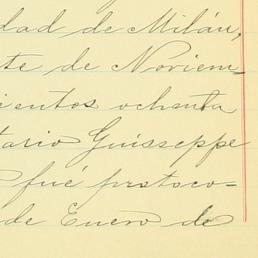 dad de Milán,
te de Noviem-
ientos ochenta
tario Guisseppe
fué protoco-
de Enero de